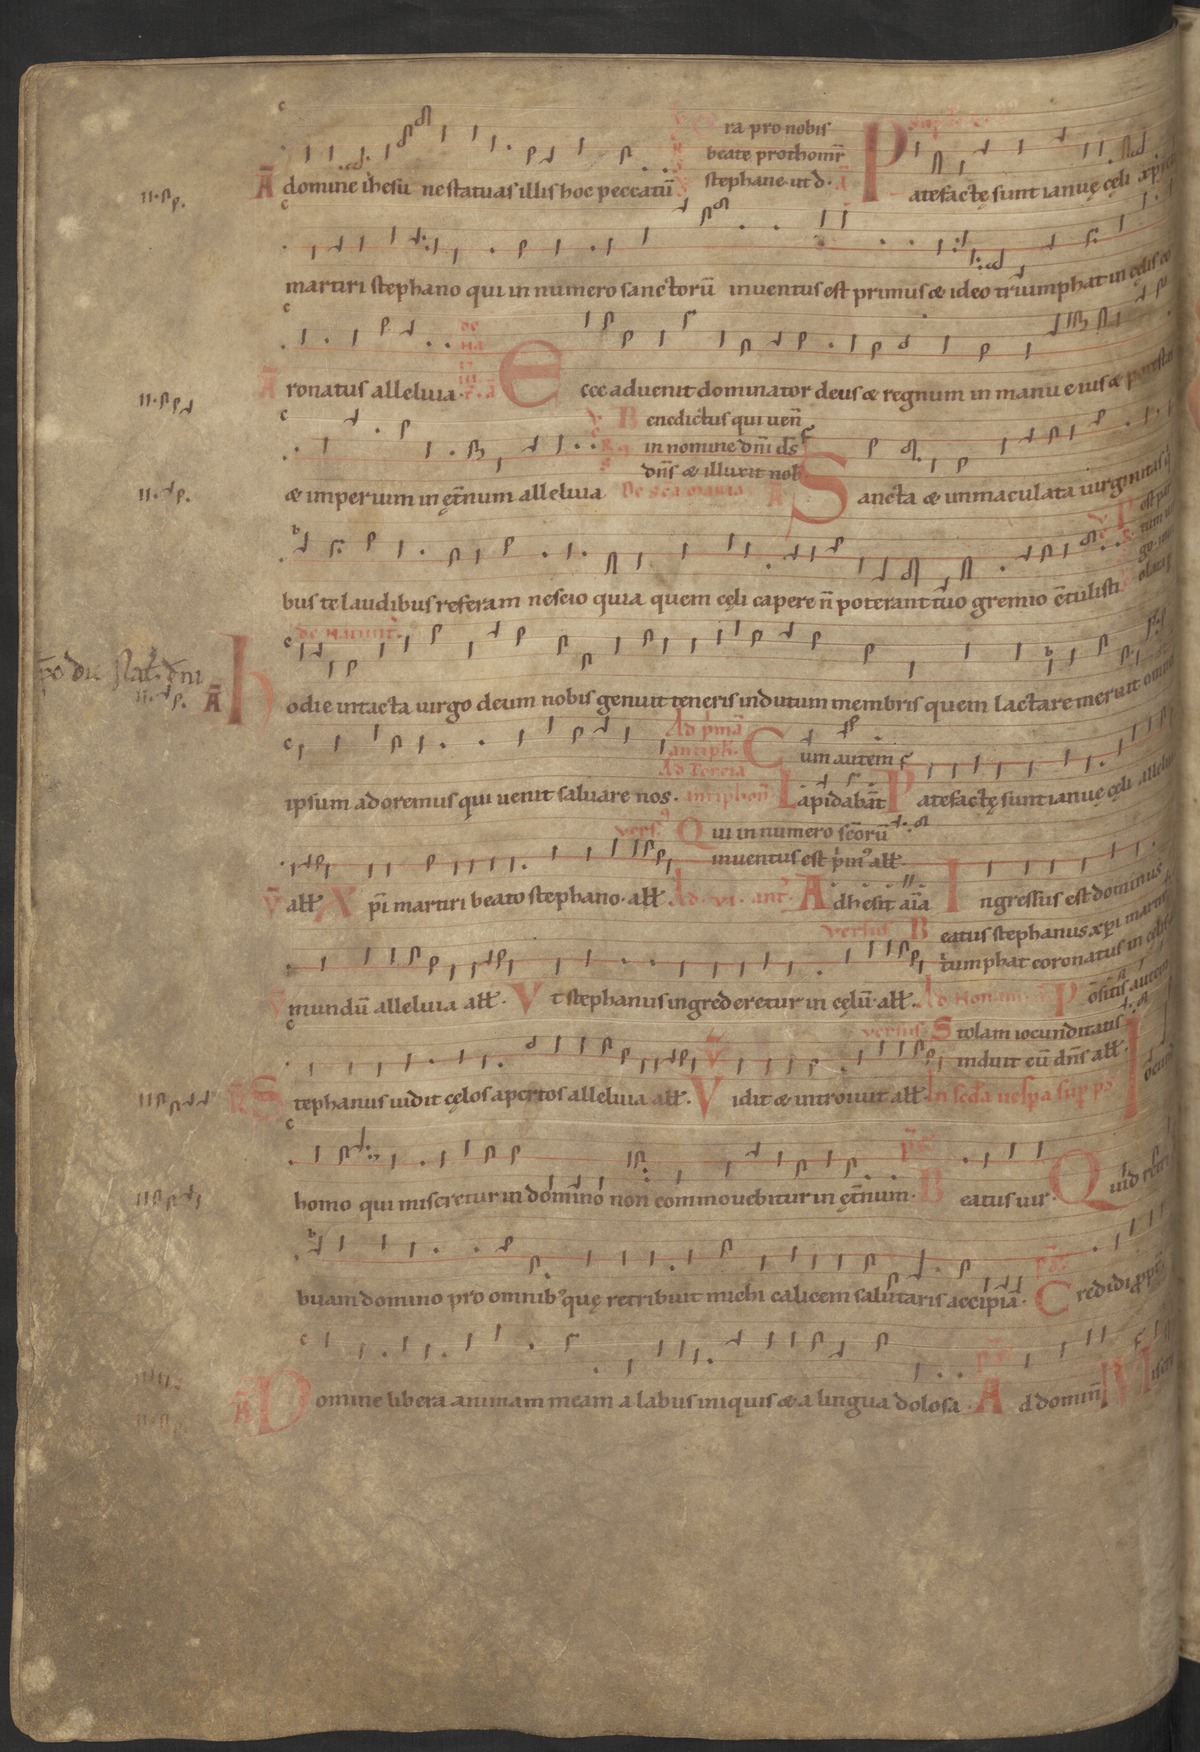 Ā domine ihesu ne statuas illis hoc peccatū
ra pro nobis
beate prothomr̄
stephane ut d·
Patefactę sunt ianuę cęli
martiri stephano qui in numero sanctorū inventus est primus & ideo triumphat in cęlis co
Ā ronatus alleluia·
Ecce advenit dominator deus & regnum in manu eius & potestas
& imperium in ęt̄num alleluia
Benedictus qui ven̄
in nomine dn̄i ds̄
dn̄s & illuxit nob
De sca maria Ā
Sancta & inmaculata virginitas q̄
bus te laudibus referam nescio quia quem cęli capere n̄ poterant tuo gremio c̄tulisti
Ā Hodie intacta virgo deum nobis genuit teneris indutum membris quem lactare meruit omnes
ipsum adoremus qui venit salvare nos·
Ad p̄mā
antiph̄·
Cum autem
Ad Tercia
antiphon̄
Lapidabāt
Patefactę sunt ianuę cęli allelu
vers̄
Qui in numero sc̄orū
inventus est p̄m᷒ all̄·
V̄ all̄ Xp̄i martiri beato stephano· all̄·
Ad· vi· ant̄·
Adhesit aīa
Ingressus est dominus
versus
Beatus stephanus xp̄i
umphat coronatus in
mundū alleluia all̄·
Vt stephanus ingrederetur in cęlū· all̄·
Ad Nonam
Positis autem
versus
Stolam iocunditatis
induit eū dn̄s all̄·
Stephanus vidit cęlos apertos alleluia all̄·
Vidit & introivit all̄·
In scd̄a vespa sup̄ ps̄
Iocund
homo qui miseretur in domino non commovebitur in ęt̄num·
Beatus vir·
Quid retri
buam domino pro omnib᷒ quę retribuit michi calicem salutaris accipiā·
Credidi
Ā Domine libera animam meam a labiis iniquis & a lingua dolosa·
Ad domin̄